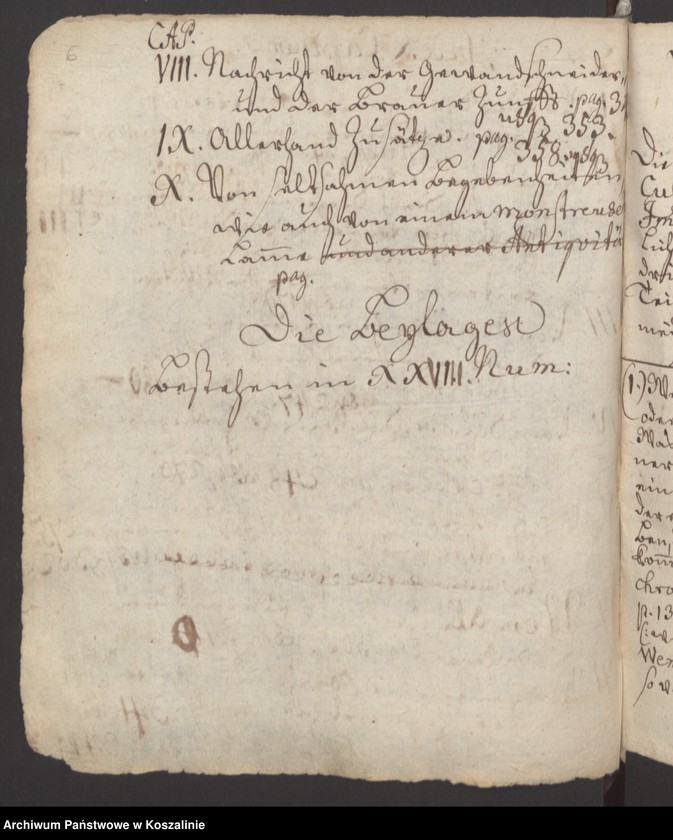 6
CAP.
VIII. Nachricht von der Gewandschneider-
und der Brauer Zunfft. pag. 3
usq 353.
IX. Allerhand Zusätze. pag.
358 usq
X. Von seltsahmen Begebenheiten
wie auch von einem monstreuse
Lamme und anderer Antiquitä
pag.
Die Beylagen
bestehen in XXVIII. Num:
Die
Cu
drit
Tei
med
(1.) We
oder
Wad
ner
ein
der
ben,
kom
chro
p. 13
Wen
so w
Archiwum Państwowe w Koszalinie